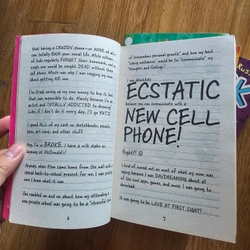 that having a CRADDY phone was NONE at ALL
can totally RUIN your social life. While
of kids regularly FORGET their homework, not a
single one would be caught DEAD without their
cell phone. Which was why I was nagging my mom
about getting me one.
I've tried saving up my own money to buy it, but
that was impossible to do. Mainly because I'm an
artist and TOTALLY ADDICTED to drawing!
Like, if I don't do it every day, I'll go NUTS!
I spend ALL of my cash on sketchbooks, pencils,
pens, art camp, and other stuff.
Hey, I'm so BROKE, I have a milk shake on
layaway at McDonald's!
Anyway, when Mom came home from the mall with a
special back-to-school present for me, I was
She rambled on and on about how my attending a
new private school was going to be a "stressful time
6
of tremendous personal growth" and how my best
"coping mechanism" would be to "communicate" my
"thoughts and feelings."
I was absolutely
ECSTATIC
because you can communicate with a
NEW CELL
PHONE!
Right?! ☺
I kind of zoned out on most of what my mom was
saying because I was DAYDREAMING about all
of the cool
download.
It was going to be LOVE AT FIRST SIGHT!
7